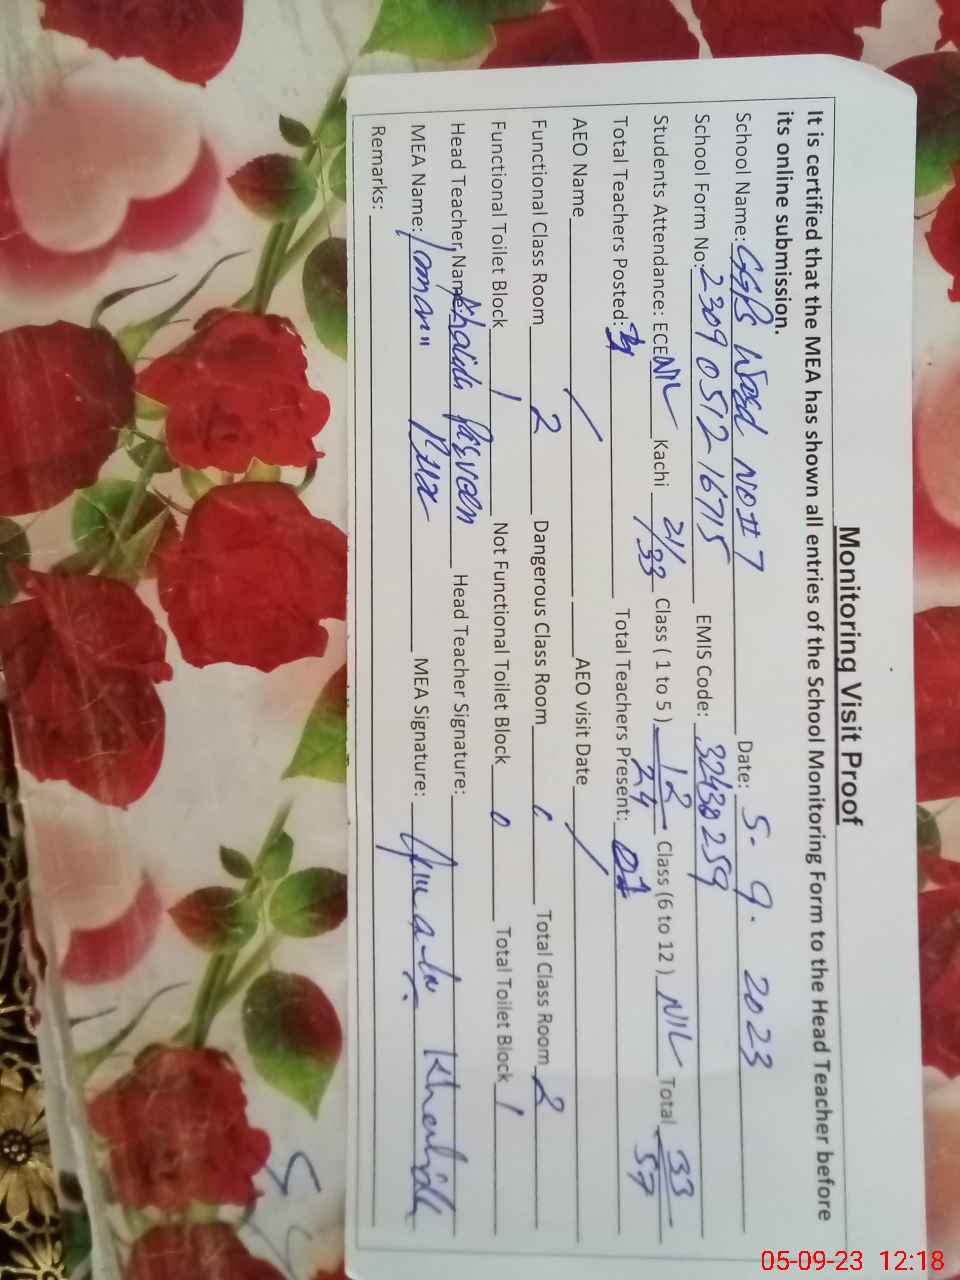 Monitoring Visit Proof
It is certified that the MEA has shown all entries of the School Monitoring Form to the Head Teacher before
its online submission.
School Name: GGPS Wasd NO# 7 Date: 5. 9. 2023
School Form No: 2309 0512 16715 EMIS Code: 32430259
Students Attendance: ECE NIL Kachi 21/33 Class ( 1 to 5 ) 12/24 Class (6 to 12 ) NIL Total 33/57
Total Teachers Posted: Total Teachers Present:
AEO Name / AEO visit Date /
Functional Class Room 2 Dangerous Class Room Total Class Room 2
Functional Toilet Block 1 Not Functional Toilet Block 0 Total Toilet Block 1
Head Teacher Name Khalida Parveen Head Teacher Signature: Khalida
MEA Name: MEA Signature:
Remarks:
05-09-23 12:18